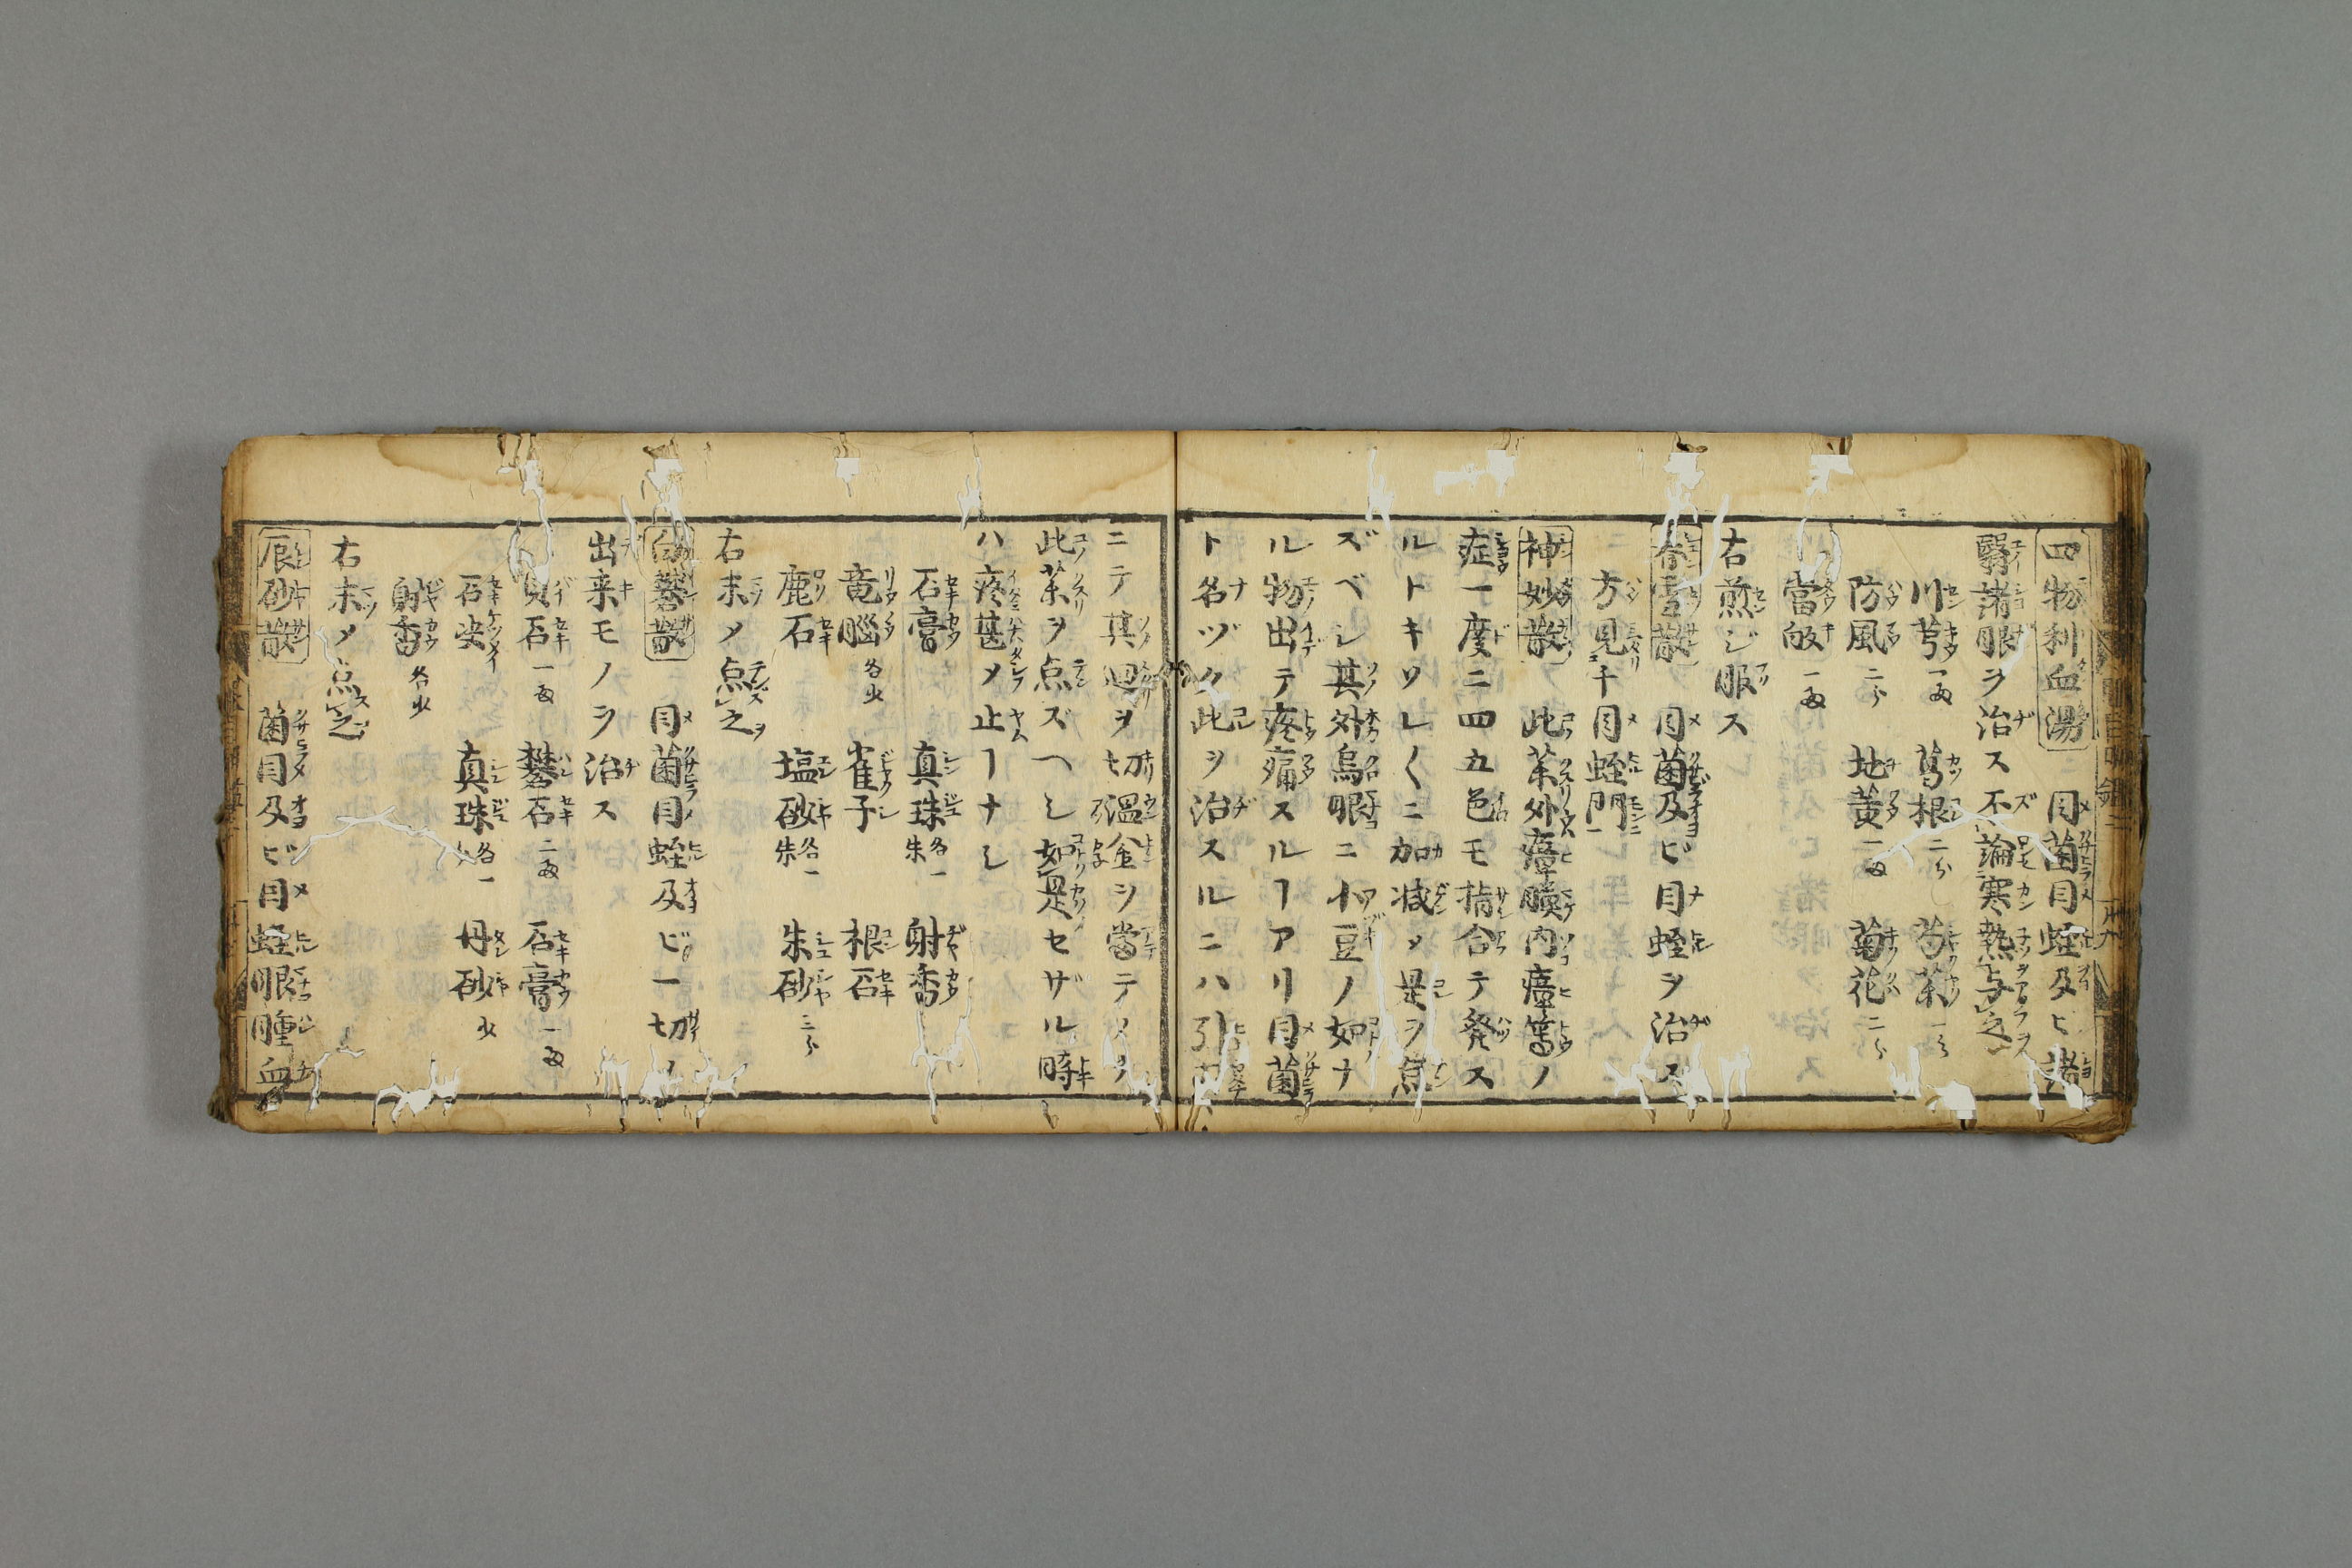 四物利血湯 目菌目蛭及ヒ諸
翳諸眼ヲ治ス不論寒熱与之
川芎一両 葛根二分 芍茶一分
防風二分 地黄一両 菊花二分
當皈一両
右煎ジ服ス
目菌及ビ目蛭ヲ治ス
方見于目蛭門
神妙散 此茶外瘴膜内瘴等ノ
症一度ニ四五色モ指合テ発ス
ルトキソレ〱ニ加减メ是ヲ点
ズベシ其外烏眼ニ小豆ノ如ナ
ル物出テ疼痛スルヿアリ目菌
ト名ヅク此ヲ治スルニハ引
ニテ其廻ヲ切温金シヲ當テメヲ
此茶ヲ点ズヘシ如是セザル時
ハ疼甚メ止ヿナシ
石膏 真珠各一朱 射香
竜脳各少 雀子 根石
鹿石 塩砂各一朱 朱砂三分
右末メ点之
白礬散 目菌目蛭及ビ一切ノ
出来モノヲ治ス
貝石一両 礬石二両 石膏一両
石决 真珠各一 丹砂少
射香各少
右末メ点之
辰砂散 菌目及ビ目蛭眼腫血